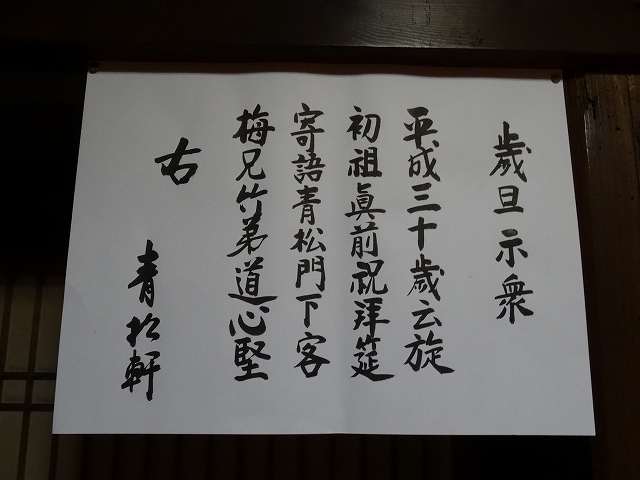 歳旦示衆
平成三十歳云旋
初祖眞前祝拝筵
寄語青松門下客
梅兄竹弟道心堅
右 青松軒